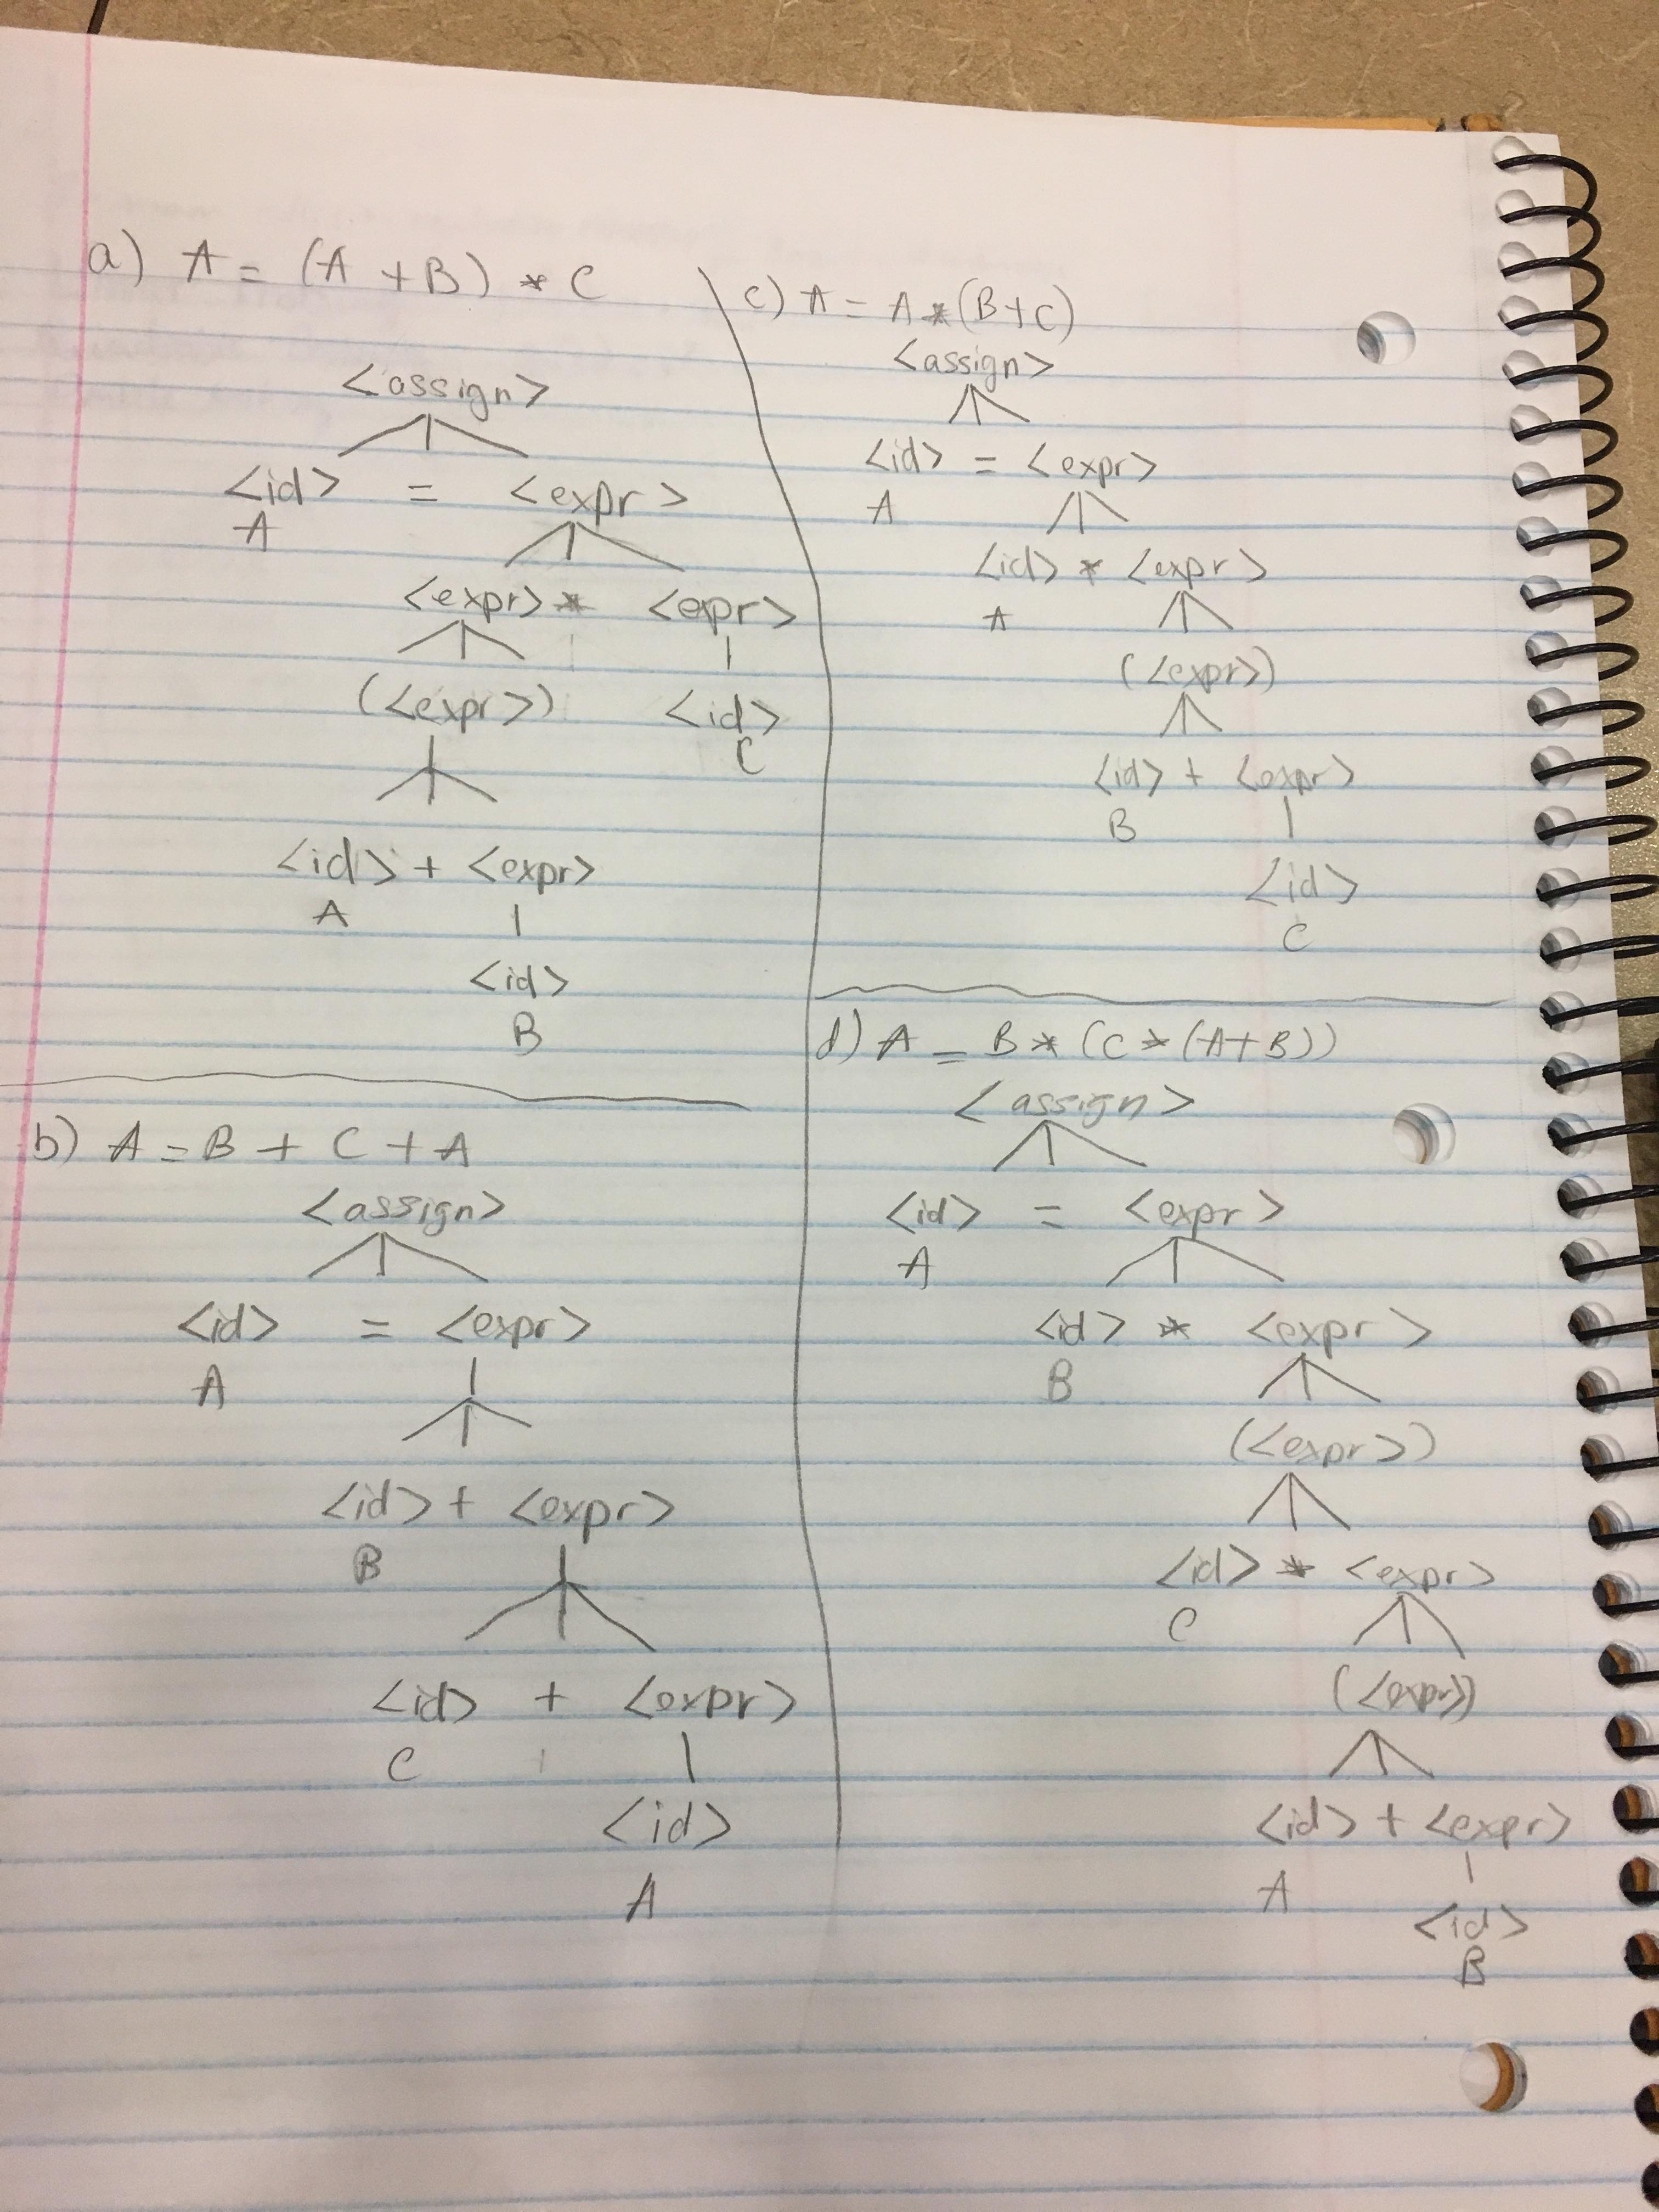 a) A = (A + B) * C
<assign>
<id> = <expr>
A
<expr> * <epr>
(<expr>) <id>
C
<id> + <expr>
A
<id>
B
b) A = B + C + A
<assign>
<id> = <expr>
A
<id> + <expr>
B
<id> + <expr>
C
<id>
A
c) A = A * (B + C)
<assign>
<id> = <expr>
A
<id> * <expr>
A
(<expr>)
<id> + <expr>
B
<id>
C
d) A = B * (C * (A + B))
<assign>
<id> = <expr>
A
<id> * <expr>
B
(<expr>)
<id> * <expr>
C
(<expr>)
<id> + <expr>
A
<id>
B